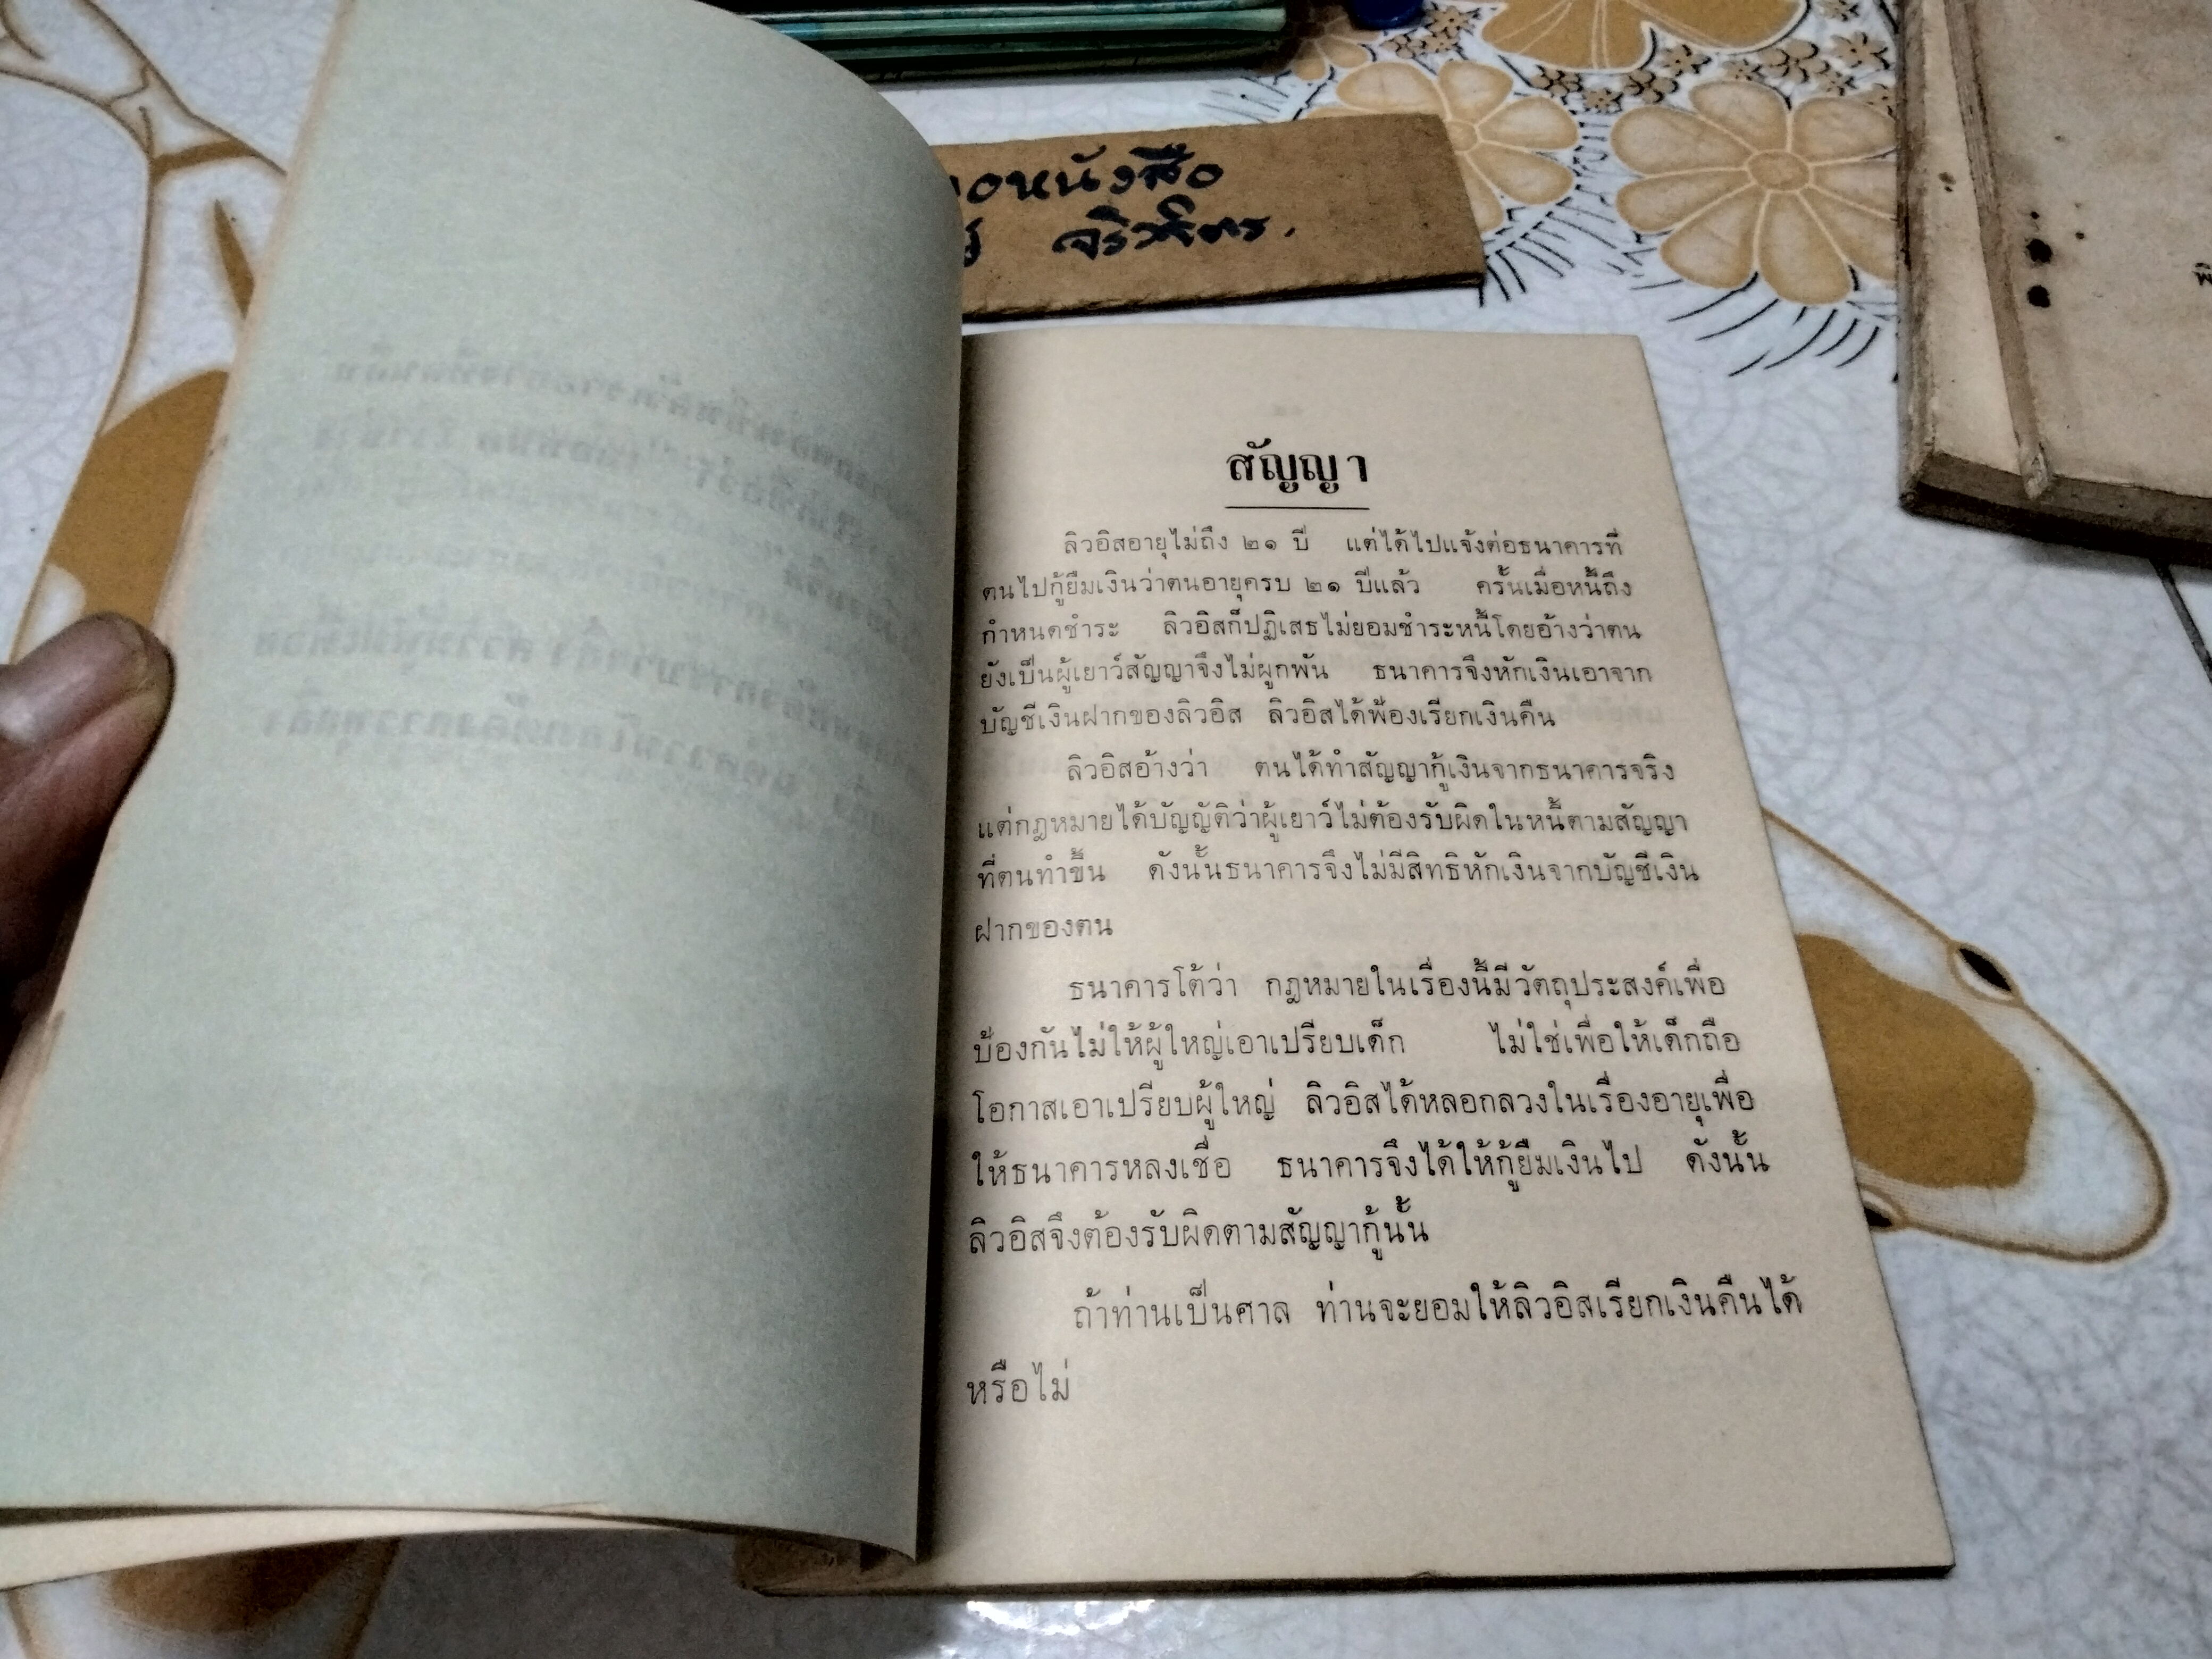 หนังสือ
สัญญา
ลิวอิสอายุไม่ถึง ๒๑ ปี แต่ได้ไปแจ้งต่อธนาคารที่
ตนไปกู้ยืมเงินว่าตนอายุครบ ๒๑ ปีแล้ว ครั้นเมื่อหนี้ถึง
กำหนดชำระ ลิวอิสก็ปฏิเสธไม่ยอมชำระหนี้โดยอ้างว่าตน
ยังเป็นผู้เยาว์สัญญาจึงไม่ผูกพัน ธนาคารจึงหักเงินเอาจาก
บัญชีเงินฝากของลิวอิส ลิวอิสได้ฟ้องเรียกเงินคืน
ลิวอิสอ้างว่า ตนได้ทำสัญญากู้เงินจากธนาคารจริง
แต่กฎหมายได้บัญญัติว่าผู้เยาว์ไม่ต้องรับผิดในหนี้ตามสัญญา
ที่ตนทำขึ้น ดังนั้นธนาคารจึงไม่มีสิทธิหักเงินจากบัญชีเงิน
ฝากของตน
ธนาคารโต้ว่า กฎหมายในเรื่องนี้มีวัตถุประสงค์เพื่อ
ป้องกันไม่ให้ผู้ใหญ่เอาเปรียบเด็ก ไม่ใช่เพื่อให้เด็กถือ
โอกาสเอาเปรียบผู้ใหญ่ ลิวอิสได้หลอกลวงในเรื่องอายุเพื่อ
ให้ธนาคารหลงเชื่อ ธนาคารจึงได้ให้กู้ยืมเงินไป ดังนั้น
ลิวอิสจึงต้องรับผิดตามสัญญากู้นั้น
ถ้าท่านเป็นศาล ท่านจะยอมให้ลิวอิสเรียกเงินคืนได้
หรือไม่